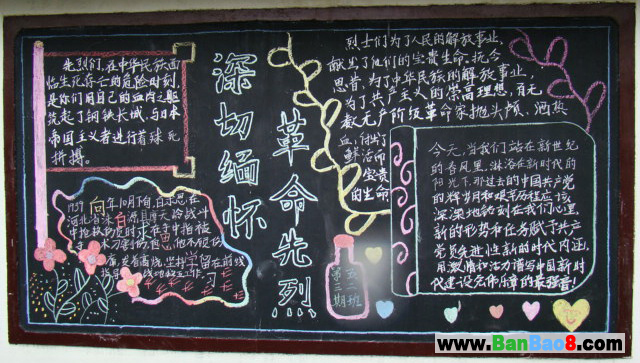 先烈们,在中华民族面
临生死存亡的危险时刻,
是你们用自己的血肉之躯
筑起了钢铁长城,与日本
帝国主义者进行着殊死
拼搏。
深切缅怀
革命先烈
烈士们为了人民的解放事业,
献出了他们的宝贵生命。抚今
思昔,为了中华民族的解放事业,
为了共产主义的崇高理想,有无
数无产阶级革命家抛头颅、洒热
血,付出了
鲜活而
宝贵
的生命
1939年10月下旬,白求恩在
河北省涞源县摩天岭战斗
中抢救伤员时
向白求恩学习
今天,当我们站在新世纪
的春风里,淋浴在新时代的
阳光下,那过去的中国共产党
的辉岁月和艰辛历程应该
深深地铭刻在我们心里,
新的形势和任务赋予共产
党员先进性新的时代内涵,
用激情和活力谱写中国新时
代建设宏伟乐章的最强音!
五二班
第三期
www.BanBao8.com